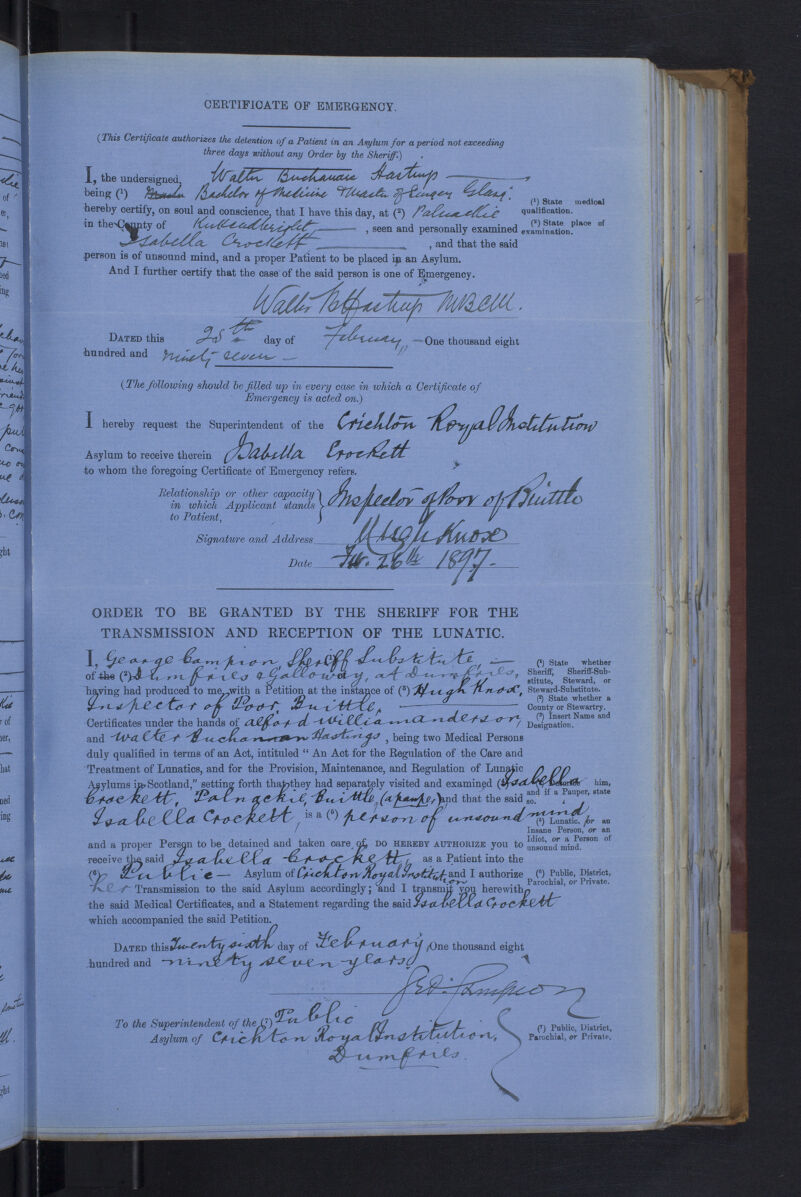 CERTIFICATE OF EMERGENCY.
(This Certificate authorizes the detention of a Patient in an Asylum for a period not exceeding
three days without any Order by the Sheriff.)
I, the undersigned, Walter Buchanan Hastings
being (¹) Bachelor of Medicine & Master of Surgery Glasg.
hereby certify, on soul and conscience, that I have this day, at (²) Palnackie
in the County of Kirkcudbright, seen and personally examined
Isabella Crockett, and that the said
person is of unsound mind, and a proper Patient to be placed in an Asylum.
And I further certify that the case of the said person is one of Emergency.
(¹) State medical
qualification.
(²) State place of
examination.
Walter B Hastings MBCM.
DATED this 25th day of February, One thousand eight
hundred and ninety seven
(The following should be filled up in every case in which a Certificate of
Emergency is acted on.)
I hereby request the Superintendent of the Crichton Royal Institution
Asylum to receive therein Isabella Crockett
to whom the foregoing Certificate of Emergency refers.
Relationship or other capacity
in which Applicant stands
to Patient,
Inspector of Poor of Buittle
Signature and Address Hugh Knox
Date Feb. 26th 1897.
ORDER TO BE GRANTED BY THE SHERIFF FOR THE
TRANSMISSION AND RECEPTION OF THE LUNATIC.
I, George Campion, Sheriff Substitute,
of the (²) Dumfries & Galloway, at Dumfries,
having had produced to me, with a Petition at the instance of (³) Hugh Knox,
Inspector of Poor, Buittle,
Certificates under the hands of Alford William Anderson,
and Walter Buchanan Hastings, being two Medical Persons
duly qualified in terms of an Act, intituled “An Act for the Regulation of the Care and
Treatment of Lunatics, and for the Provision, Maintenance, and Regulation of Lunatic
Asylums in Scotland,” setting forth that they had separately visited and examined (⁴) Isabella
Crockett, Palnackie, Buittle, (a pauper) and that the said
Isabella Crockett, is a (⁵) person of unsound mind
and a proper Person to be detained and taken care of, DO HEREBY AUTHORIZE you to
receive the said Isabella Crockett, as a Patient into the
(⁶) Public Asylum of Crichton Royal Institution and I authorize
her Transmission to the said Asylum accordingly; and I transmit you herewith
the said Medical Certificates, and a Statement regarding the said Isabella Crockett
which accompanied the said Petition.
(¹) State whether
Sheriff, Sheriff-Sub-
stitute, Steward, or
Steward-Substitute.
(²) State whether a
County or Stewartry.
(³) Insert Name and
Designation.
(⁴) Describe him,
and if a Pauper, state
so.
(⁵) Lunatic, or an
Insane Person, or an
Idiot, or a Person of
unsound mind.
(⁶) Public, District,
Parochial, or Private.
DATED this Twenty sixth day of February, One thousand eight
hundred and ninety seven years
Geo: Campion
To the Superintendent of the (⁷) Public
Asylum of Crichton Royal Institution,
Dumfries.
(⁷) Public, District,
Parochial, or Private.